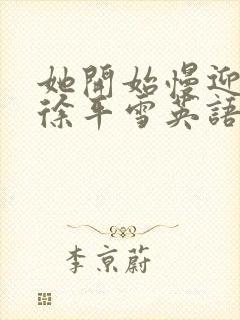 她開始慢迎
徐平雪英語
李京蔚